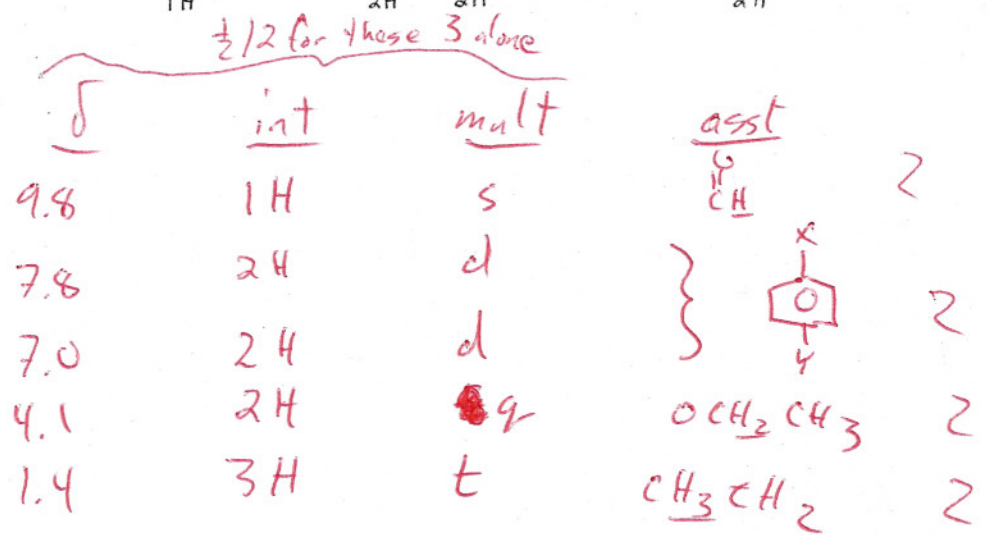 1H 2H 2H 2H
½/2 for these 3 alone
δ int mult asst
9.8 1H s O CH 2
7.8 2H d X
7.0 2H d Y 2
4.1 2H q OCH2CH3 2
1.4 3H t CH3CH2 2